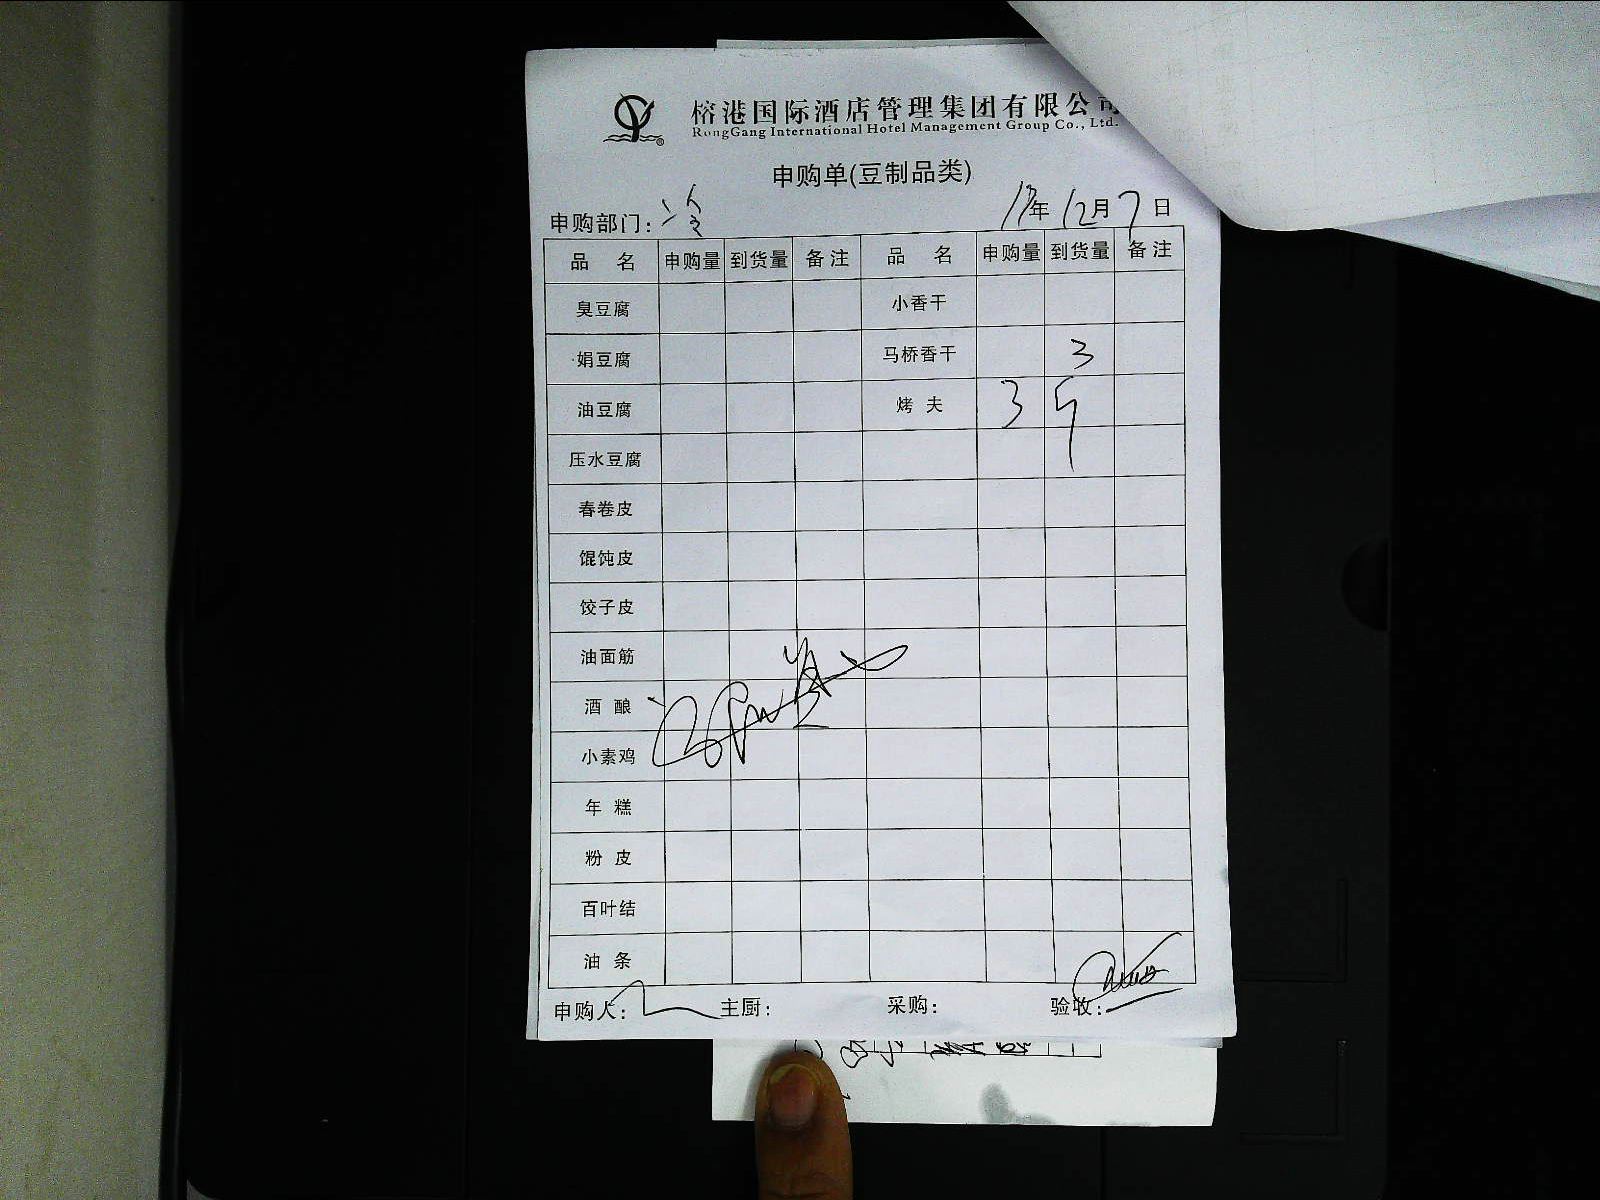 榕港国际酒店管理集团有限公司
RongGang International Hotel Management Group Co., Ltd.
申购单(豆制品类)
申购部门: 冷 年 12月 7日
品 名 申购量 到货量 备注 品 名 申购量 到货量 备注
臭豆腐 小香干
娟豆腐 马桥香干 3
油豆腐 烤 夫 3
压水豆腐
春卷皮
馄饨皮
饺子皮
油面筋
酒 酿
小素鸡
年 糕
粉 皮
百叶结
油 条
申购人: 主厨: 采购: 验收: